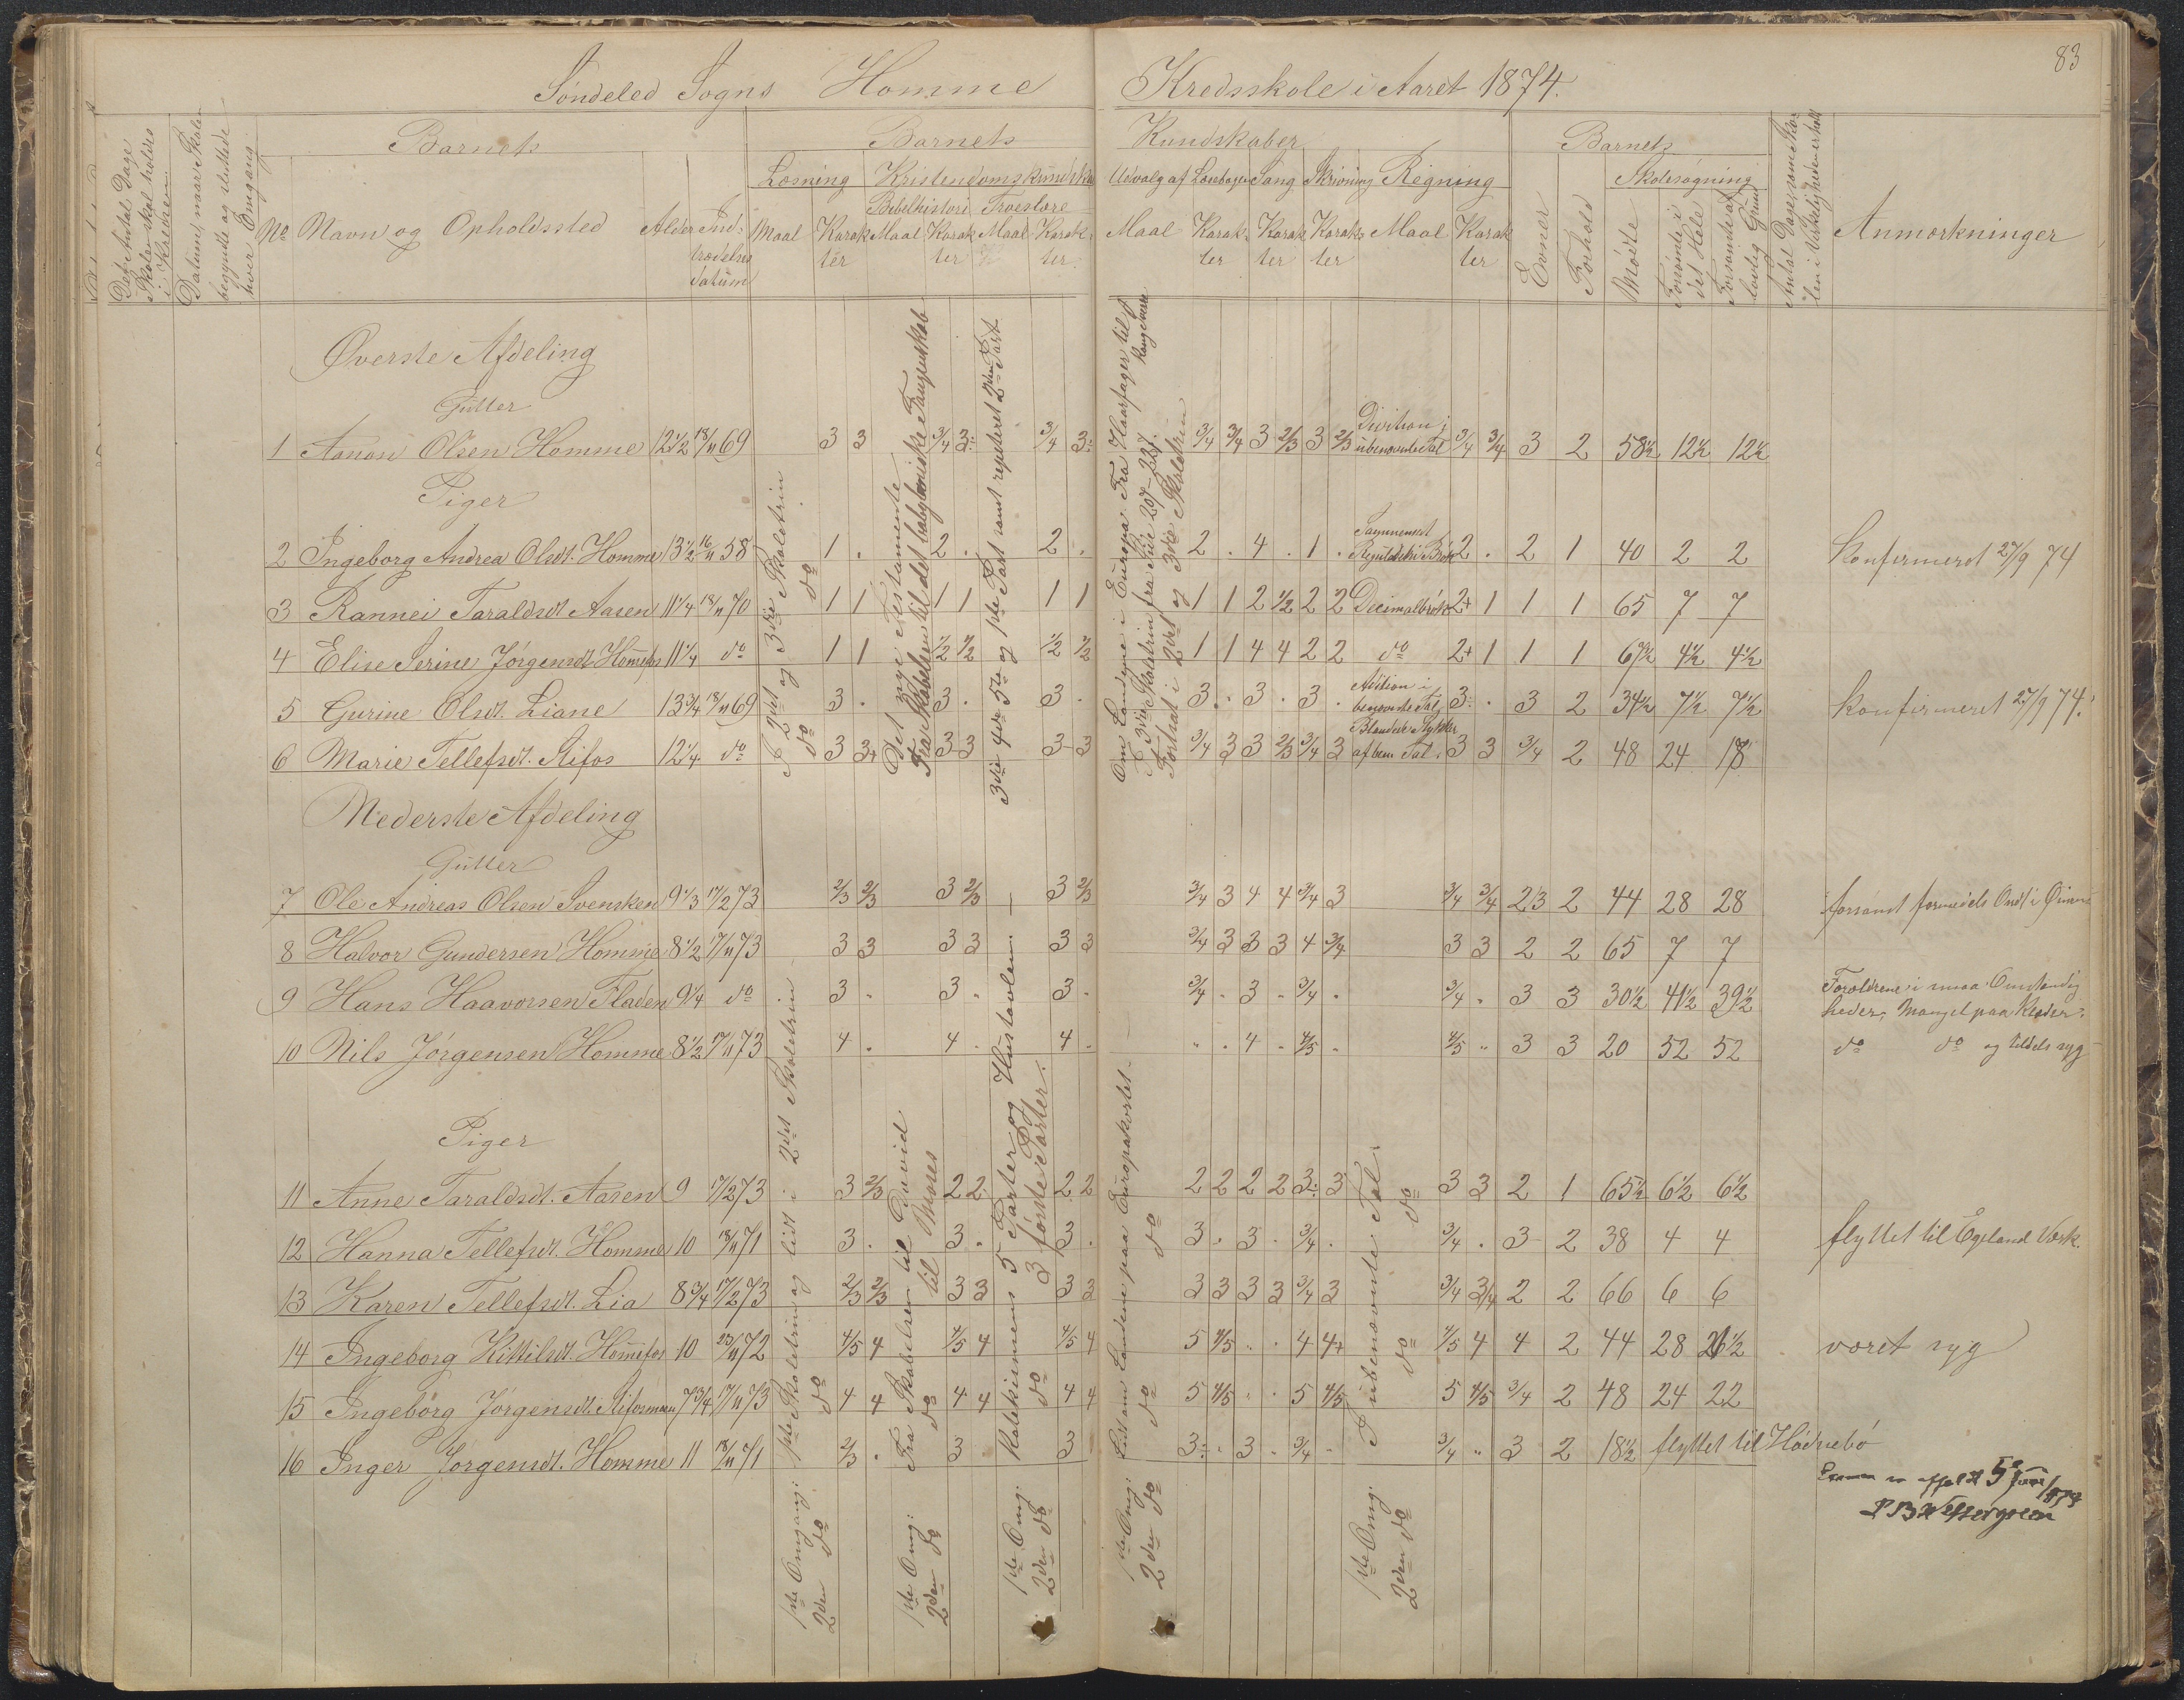 83
Søndeled Sogns Homme Kredsskole i Aaret 1874.
Det Antal Dage Skolen skal holdes i Kredsen.
Datum, naar Skolen begyndte og sluttede hver Omgang
Barnets
Barnets Kundskaber
Barnets
No Navn og Opholdssted
Alder
Indtrædelses datum
Læsning
Kristendomskundskab
Bibelhistori
Troeslære
Udvalg af Læsebogen
Sang
Skrivning
Regning
Maal Karakter Maal Karakter Maal Karakter
Maal Karakter Karakter Karakter Maal Karakter
Evner
Forhold
Skolesøgning
Mødte
Forsømte i det Hele
Forsømte af lovlig Grund
Antal Dage, som Skolen i Virkeligheden er holdt
Anmærkninger
Øverste Afdeling
Gutter
1 Aanon Olsen Homme 12 1/2 18/11 69 3 3 3/4 3: 3/4 3: 3/4 3/4 3 2/3 3 2/3 Division i ubenævnte Tal 3/4 3/4 3 2 58 1/2 12 1/2 12 1/2
Piger
2 Ingeborg Andrea Olsdt. Homme 13 1/2 16/11 58 1 . 2 . 2 . 2 . 4 . 1 . Sammensat Reguladetri i Brøk 2 . 2 1 40 2 2 Konfirmeret 27/9 74
3 Rannei Taraldsdt Aasen 11 1/4 18/11 70 1 1 1 1 1 1 1 1 2 1/2 2 2 Decimalbrøk 2+ 1 1 1 65 7 7
4 Elise Serine Jørgensdt Hommefos 11 1/4 do 1 1 1/2 1/2 1/2 1/2 1 1 4 4 2 2 do 2+ 1 1 1 67 1/2 4 1/2 4 1/2
5 Gurine Olsdt. Liane 13 3/4 18/11 69 3 . 3 . 3 . 3 . 3 . 3 . Adition i benævnte Tal 3: . 3 2 34 1/2 7 1/2 7 1/2 Konfirmeret 27/9 74.
6 Marie Tellefsdt. Stifos 12 1/4 do 3 3+ 3 3 3 3 3/4 3 3 2/3 3/4 3 Blandede Stykker af ben. Tal. 3 3 3/4 2 48 24 18
I 2det og 3die Skoletrin
do
do
Det nye Testamente
Fra Skabelsen til det babyloniske Fangenskab
3die 4de 5te og 1ste Part samt repeteret 2den Part
Om Landene i Europa. Fra Haarfager til
I 3die Skoletrin fra Side 207-227.
Fortsat i 2det og 3die Skoletrin
Nederste Afdeling
Gutter
7 Ole Andreas Olsen Svensken 9 1/3 17/2 73 2/3 2/3 3 2/3 3 2/3 3/4 3 4 4 3/4 3 3/4 3/4 2/3 2 44 28 28 forsømt formedels Ondt i Øinene
8 Halvor Gundersen Homme 8 1/2 17/11 73 3 3 3 3 3 3 3/4 3 3 3 4 3/4 3 3 2 2 65 7 7
9 Hans Haavorsen Fladen 9 1/4 do 3 . 3 . 3 . 3/4 . 3 . 3/4 . 3/4 . 3 3 30 1/2 41 1/2 39 1/2 Forældrene i smaa Omstændigheder; Mangel paa Klæder.
10 Nils Jørgensen Homme 8 1/2 17/11 73 4 . 4 . 4 . . . 4 . 4/5 . 4/5 . 3 3 20 52 52 do do og tildels syg
Piger
11 Anne Taraldsdt. Aasen 9 17/2 73 3 2/3 2 2 2 2 2 2 2 2 3: 3 3 3 2 1 65 1/2 6 1/2 6 1/2
12 Hanna Tellefsdt. Homme 10 18/11 71 3 . 3 . 3 . 3 . 3 . 3/4 . 3/4 . 3 2 38 4 4 flyttet til Egeland Værk.
13 Karen Tellefsdt. Lia 8 3/4 17/2 73 2/3 2/3 3 3 3 3 3 3 3 3 3/4 3 3/4 3/4 2 2 66 6 6
14 Ingeborg Kittilsdt. Hommefos 10 23/11 72 4/5 4 4/5 4 4/5 4 5 4/5 . . 4 4+ 4/5 4 4 2 44 28 26 1/2 været syg
15 Ingeborg Jørgensdt. Stifosmoen 7 3/4 17/11 73 4 4 4 4 4 4 5 4/5 . . 5 4/5 5 4/5 3/4 2 48 24 22
16 Inger Jørgensdt. Homme 11 18/11 71 2/3 . 3 3 3: . 3 . 3/4 . 3/4 . 3 2 18 1/2 flyttet til Hødnebø
1ste Omgang: 1ste Skoletrin og lidt i 2det Skoletrin
2den do do
1ste Omg: Fra Skabelsen til David
2den do do til Moses
1ste Omg. Katekismens 5 Parter og Hustavlen.
2den do do 3 første Parter.
1ste Omg: Lidt om Landene paa Europakortet
2den do do do
1ste Omg. I ubenævnte Tal.
2den do do do
5 Juni 1874